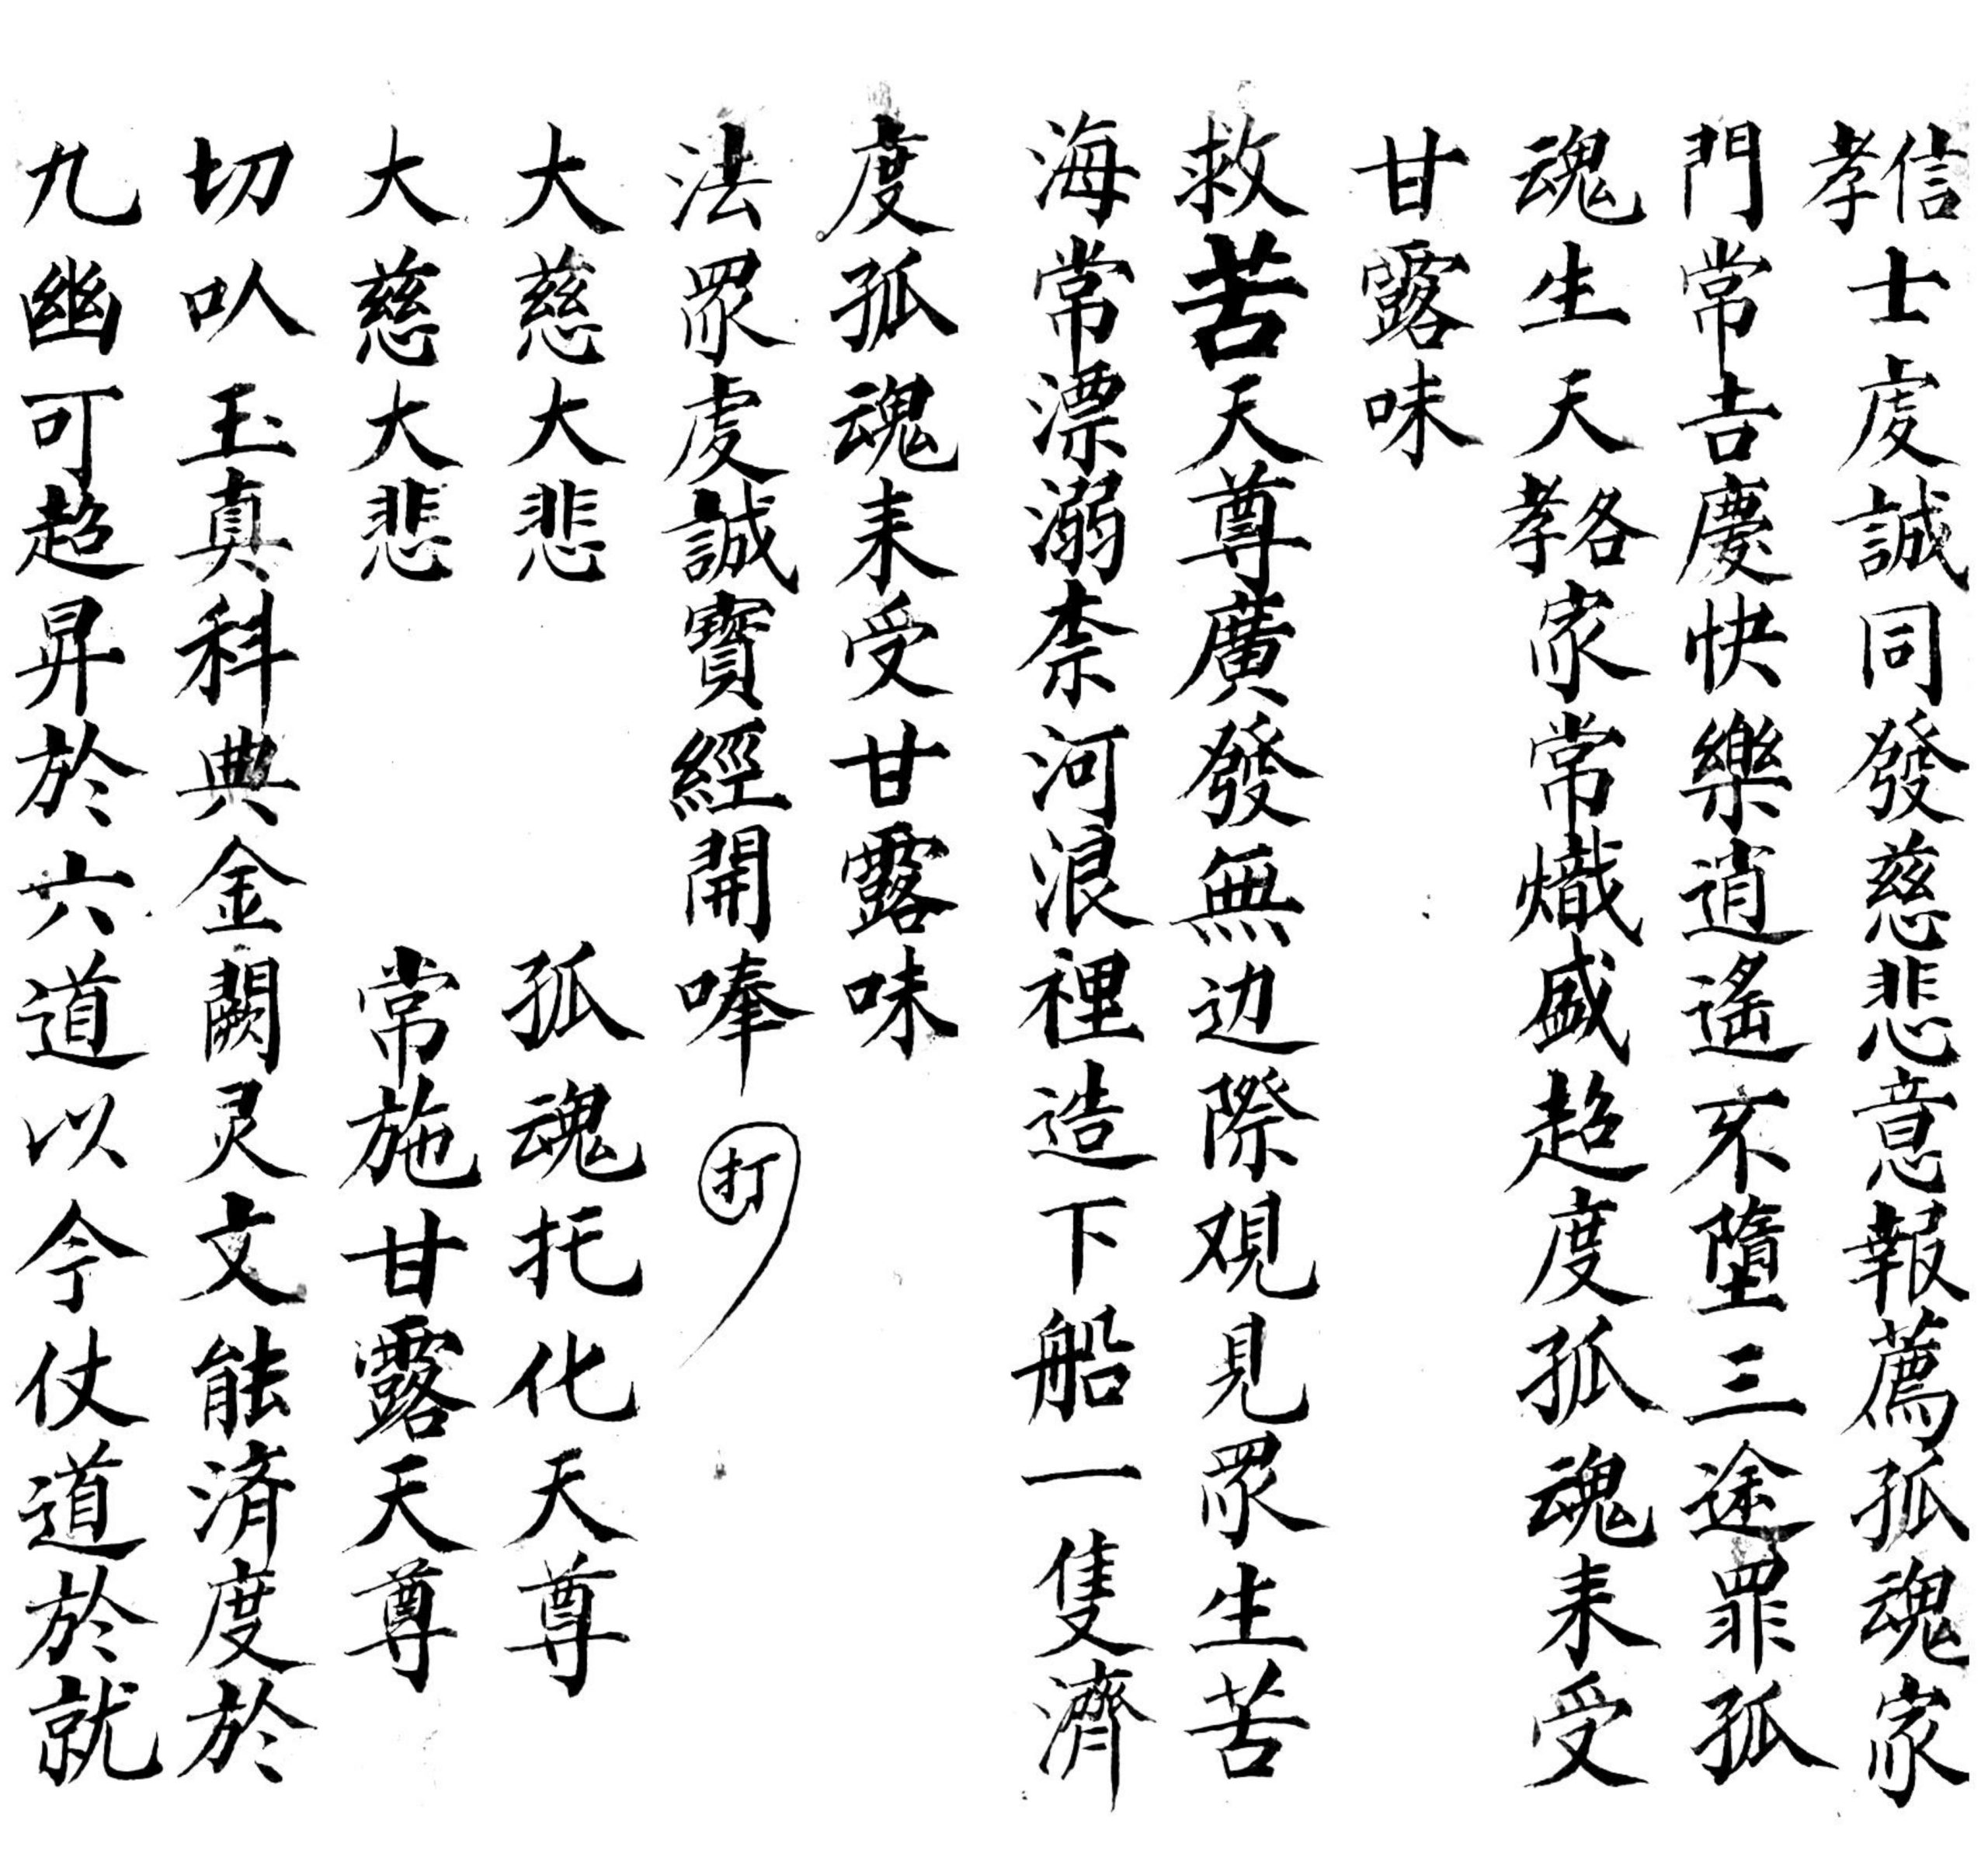 信孝士虔誠同發慈悲意報薦孤魂家
門常吉慶快樂逍遙不墮三途罪孤
魂生天各孝家常熾盛超度孤魂来受
甘露味
救苦天尊廣發無边際观見眾生苦
海常漂溺柰河浪裡造下船一隻濟
度孤魂来受甘露味
法眾虔誠寶經開唪 打
大慈大悲 孤魂托化天尊
大慈大悲 常施甘露天尊
切㕥玉真科典金闕灵文能済度於
九幽可超昇於六道以今仗道於就